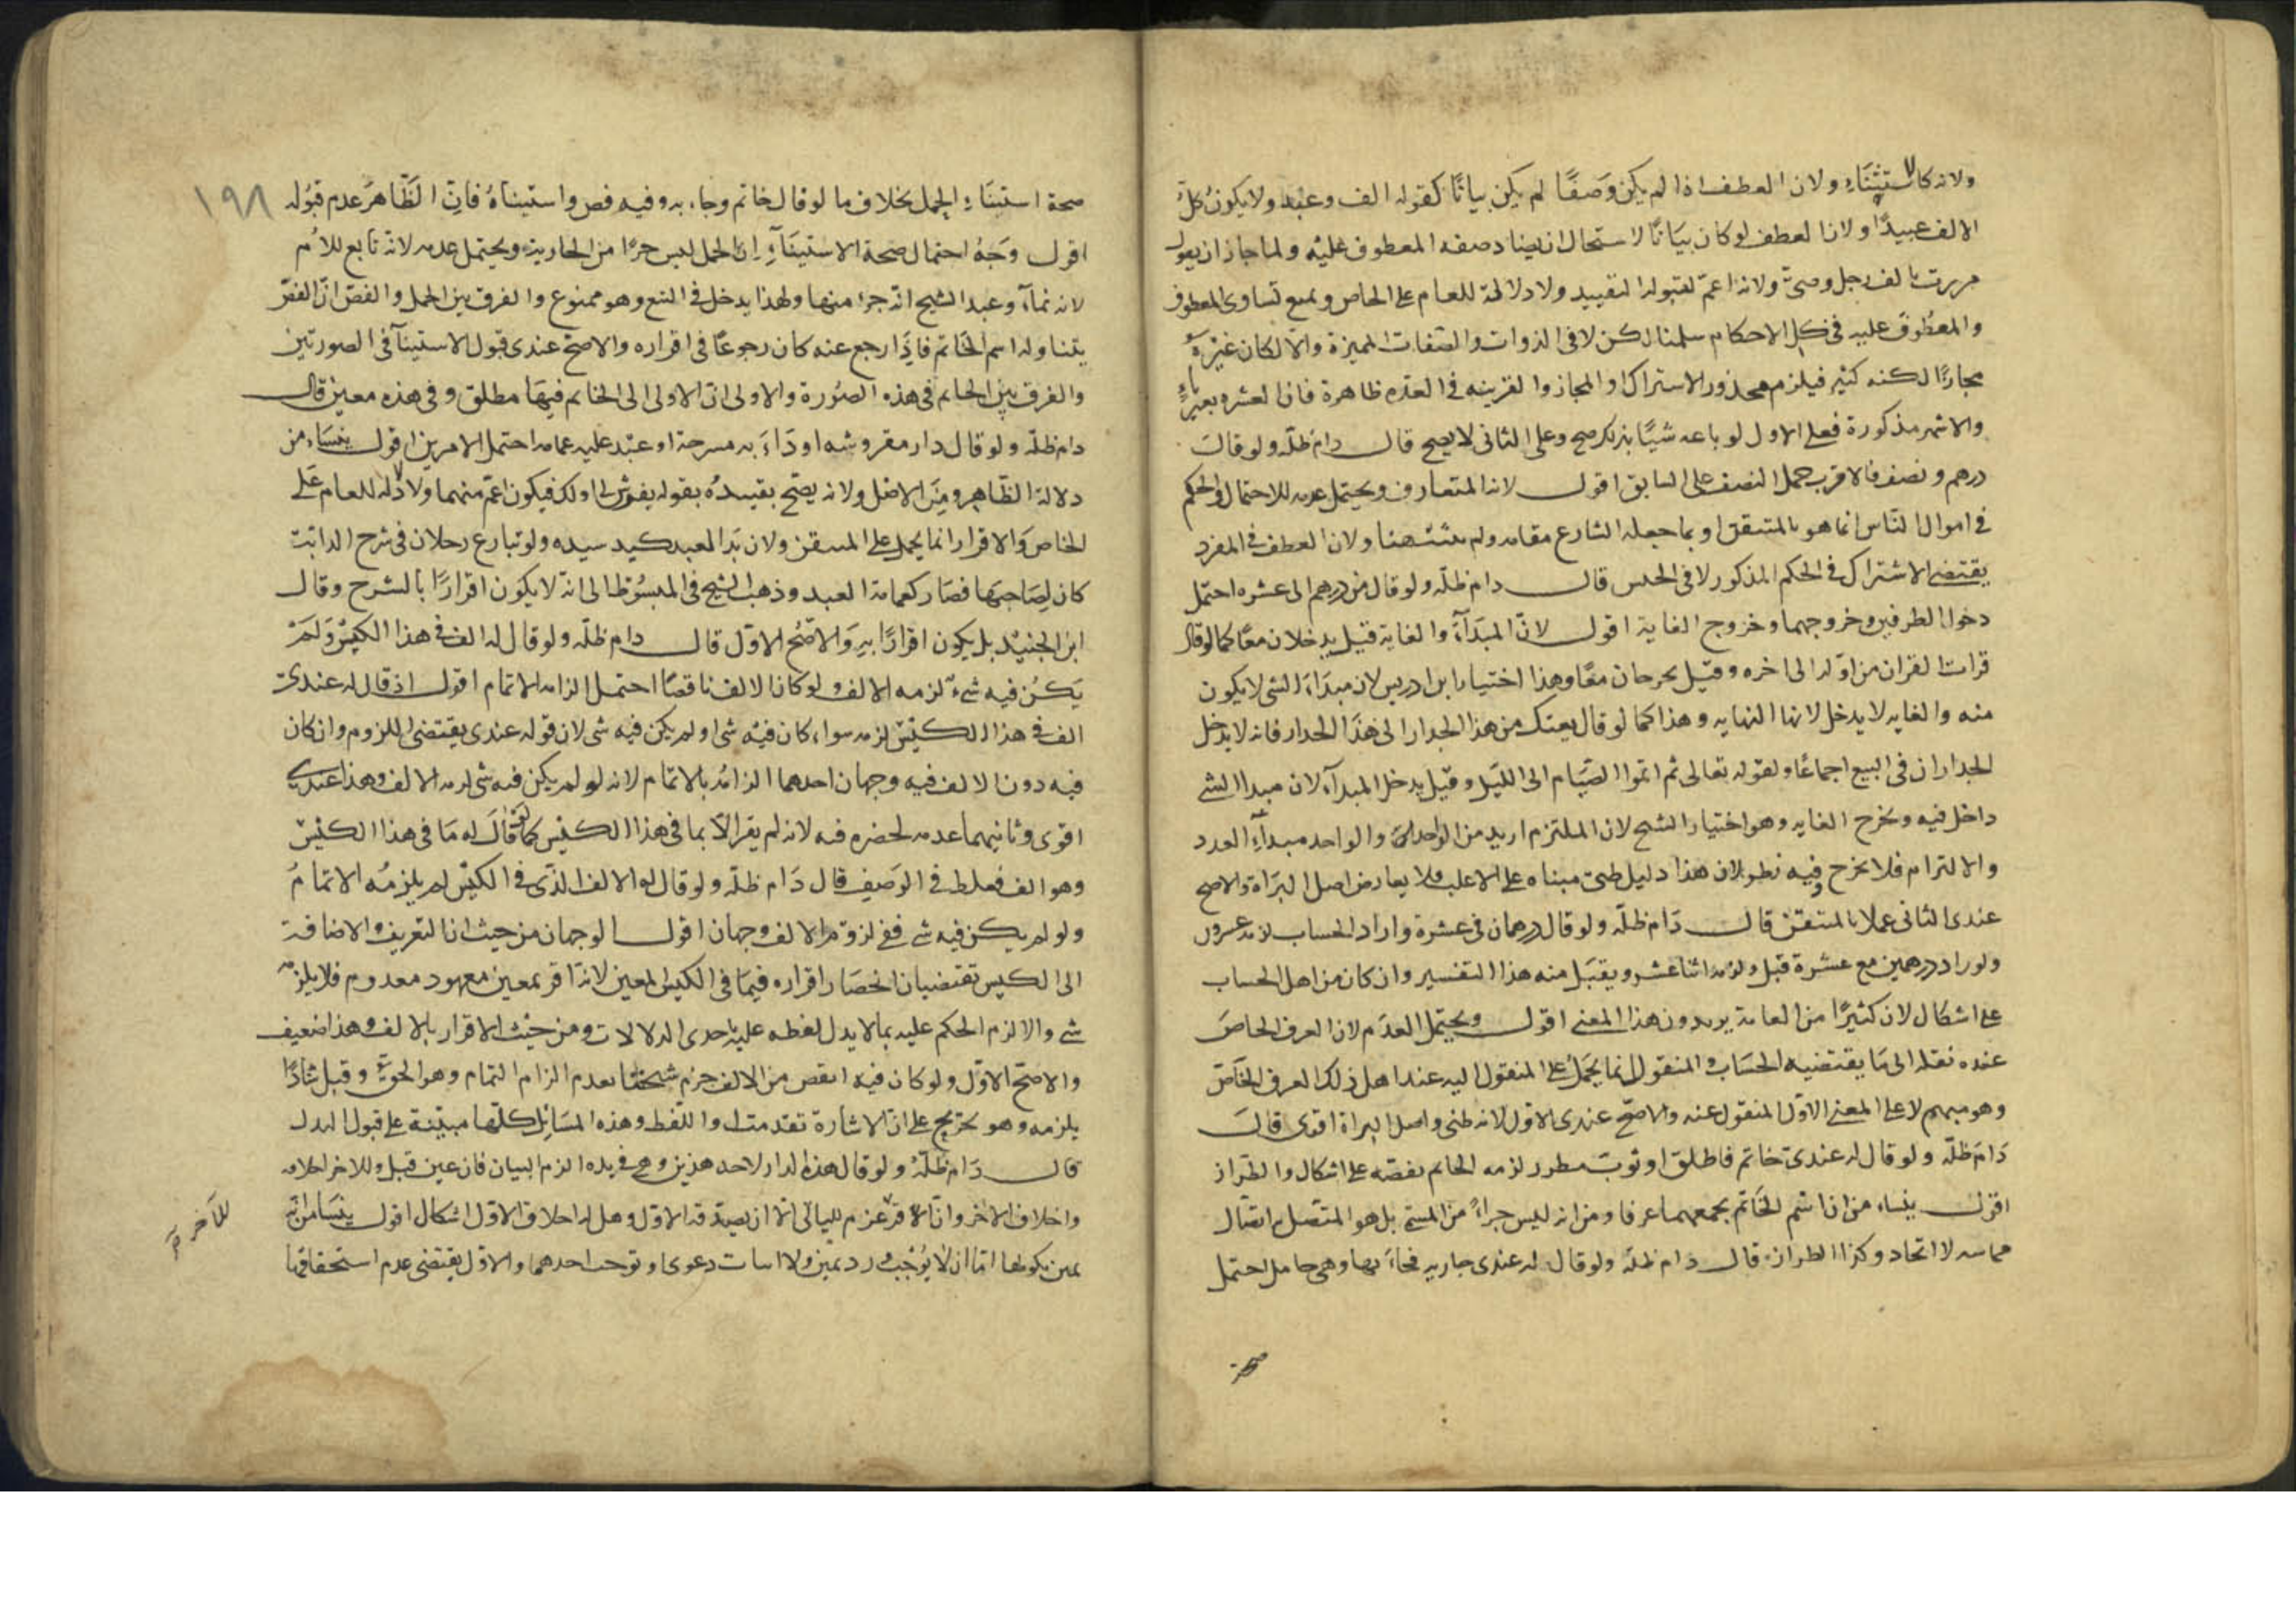 ولانه كالاستثناء ولان العطف اذا لم يكن وصفًا لم يكن بيانًا كقوله الف وعبد ولا يكون كل
الالف عبيدًا ولان العطف لو كان بيانًا لاستحال ان يضاد صفه المعطوف عليه ولما جاز ان يقول
مررت بالف رجل وصبي ولانه اعم لقبوله التقييد ولا دلالة للعام على الخاص ونمنع تساوى المعطوف
والمعطوف عليه فى كل الاحكام سلمنا لكن لا فى الذوات والصفات المميزة والا لكان غيره
مجازًا لكنه كثير فيلزم محذور الاشتراك او المجاز والقرينه فى العقد ظاهرة فان العشره بعيرياء
والاشهر مذكورة فعلى الاول لو باعه شيئًا بذلك صح وعلى الثانى لا يصح قال دام ظله ولو قال
درهم ونصف فالاقرب حمل النصف على السابق اقول لانه المتعارف ويحتمل عدمه للاحتمال والحكم
فى اموال الناس انما هو بالمتيقن او بما جعله الشارع مقامه ولم يثبت هنا ولان العطف فى المفرد
يقتضى الاشتراك فى الحكم المذكور لا فى الجنس قال دام ظله ولو قال من درهم الى عشره احتمل
دخول الطرفين وخروجهما وخروج الغاية اقول لان المبدأ والغاية قيل يدخلان معًا كما لو قال
قرات القران من اوله الى اخره وقيل يخرجان معًا وهذا اختيار ابن ادريس لان مبداء الشى لا يكون
منه والغايه لا يدخل لانها النهايه وهذا كما لو قال بعتك من هذا الجدار الى هذا الجدار فانه لا يدخل
الجداران فى البيع اجماعًا ولقوله تعالى ثم اتموا الصيام الى الليل وقيل يدخل المبدأ لان مبدا الشى
داخل فيه وتخرج الغايه وهو اختيار الشيخ لان الملتزم ازيد من الواحد والواحد مبدأ العدد
والالتزام فلا يخرج وفيه نظر لان هذا دليل ظنى مبناه على الاغلب فلا يعارض اصل البراة والاصح
عندى الثانى عملا بالمتيقن قال دام ظله ولو قال درهمان فى عشرة واراد الحساب لزمه عشرون
ولو اراد درهمين مع عشرة قبل ولزمه اثنا عشر ويقبل منه هذا التفسير وان كان من اهل الحساب
على اشكال لان كثيرًا من العامة يريدون هذا المعنى اقول ويحتمل العدم لان العرف الخاص
عنده نقله الى ما يقتضيه الحساب والمنقول انما يحمل على المنقول اليه عند اهل ذلك العرف الخاص
وهو مبهم لا على المعنى الاول المنقول عنه والاصح عندى الاول لانه ظنى واصل البراة اقوى قال
دام ظله ولو قال له عندى خاتم فاطلق او ثوب مطرز لزمه الخاتم بفصه على اشكال والطراز
اقول ينشاء من ان اسم الخاتم يجمعهما عرفا ومن انه ليس جزاء من المسمى بل هو المتصل به اتصال
مماسه لا اتحاد وكذا الطراز قال دام ظله ولو قال له عندى جاريه فجاء بها وهى حامل احتمل
صحة
١٩٨
صحة استثناء الحمل بخلاف ما لو قال خاتم وجاء به وفيه فص واستثناه فان الظاهر عدم قبوله
اقول وجه احتمال صحة الاستثناء ان الحمل ليس جزءًا من الجارية ويحتمل عدمه لانه تابع للام
لانه نماء وعند الشيخ انه جزء منها ولهذا يدخل فى البيع وهو ممنوع والفرق بين الحمل والفص ان الفص
يتناوله اسم الخاتم فاذا رجع عنه كان رجوعًا فى اقراره والاصح عندى قبول الاستثناء فى الصورتين
والفرق بين الخاتم فى هذه الصورة والاولى ان الاولى الى الخاتم فيها مطلق وفى هذه معين قال
دام ظله ولو قال دار مفروشه او دابه مسرجة او عبد عليه عمامه احتمل الامرين اقول ينشاء من
دلالة الظاهر ومن الاصل ولانه يصح تقييده بقوله بفرش لى او لك فيكون اعم منهما ولا دلاله للعام على
الخاص والاقرار انما يحمل على المتيقن ولان يد العبد كيد سيده ولو تنازع رجلان فى سرج الدابة
كان لصاحبها فصار كعمامة العبد وذهب الشيخ فى المبسوط الى انه لا يكون اقرارًا بالسرج وقال
ابن الجنيد بل يكون اقرارًا به والاصح الاول قال دام ظله ولو قال له الف فى هذا الكيس ولم
يكن فيه شىء لزمه الالف ولو كان الالف ناقصًا احتمل الزامه الاتمام اقول اذ قال له عندى
الف فى هذا الكيس لزمه سواء كان فيه شى او لم يكن فيه شى لان قوله عندى يقتضى اللزوم وان كان
فيه دون الالف فيه وجهان احدهما الزامه بالاتمام لانه لو لم يكن فيه شى لزمه الالف وهذا عندى
اقوى وثانيهما عدمه لحصره فيه لانه لم يقر الا بما فى هذا الكيس كما لو قال له ما فى هذا الكيس
وهو الف فغلط فى الوصف قال دام ظله ولو قال له الالف الذى فى الكيس لم يلزمه الاتمام
ولو لم يكن فيه شى ففى لزوم الالف وجهان اقول الوجهان من حيث ان التعريف والاضافة
الى الكيس تقتضيان انحصار اقراره فيما فى الكيس المعين لانه اقر بمعين معهود معدوم فلا يلزمه
شى والا لزم الحكم عليه بما لا يدل لفظه عليه باحدى الدلالات ومن حيث الاقرار بالالف وهذا ضعيف
والاصح الاول ولو كان فيه انقص من الالف جزم شيخنا بعدم الزام التمام وهو الحق وقيل شاذًا
يلزمه وهو تخريج على ان الاشارة تقدمت او اللفظ وهذه المسائل كلها مبنية على قبول البدل
قال دام ظله ولو قال هذه الدار لاحد هذين وهى فى يده الزم البيان فان عين قبل وللاخر احلافه
واحلاف الاخر وان اقر غرم للثانى الا ان يصدقه الاول وهل له احلاف الاول اشكال اقول ينشا من انه
يمين نكولها اما ان لا يوجب رد يمين ولا اثبات دعوى او توجب احدهما والاول يقتضى عدم استحقاقها
للاخر